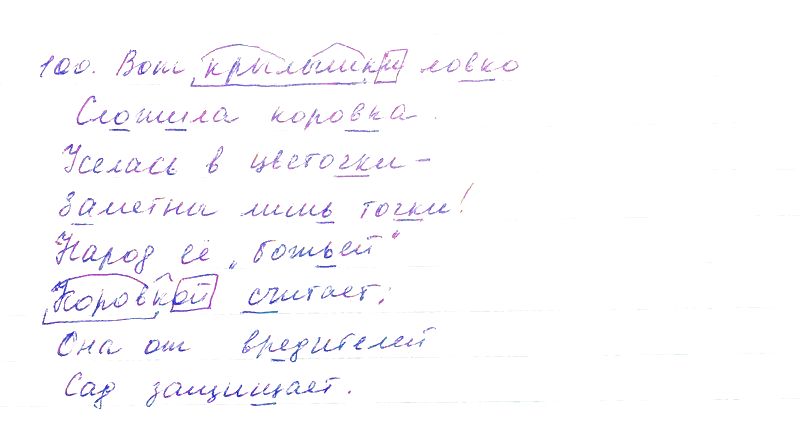 100. Вот крылышки ловко
Сложила коровка.
Уселась в цветочки –
Заметны лишь точки!
Народ её „божьей"
Коровкой считает;
Она от вредителей
Сад защищает.